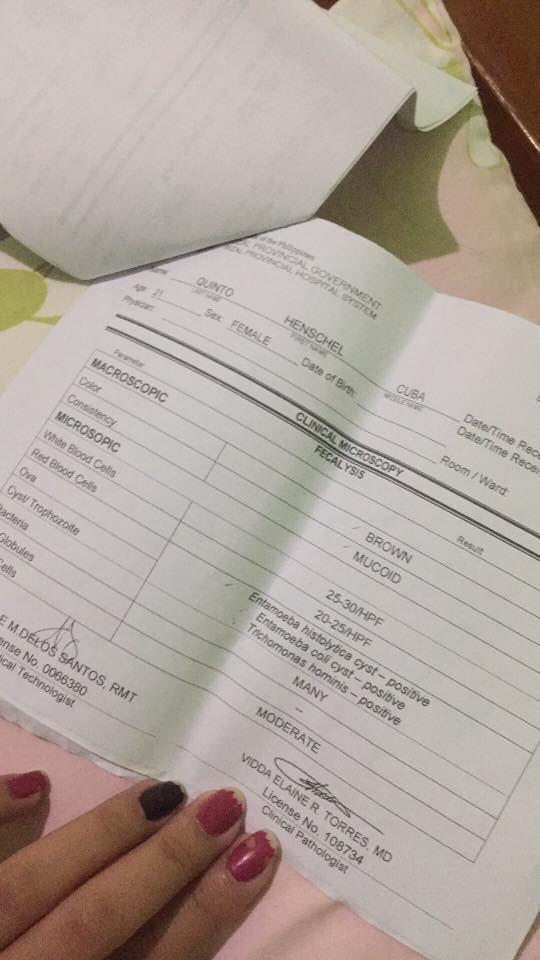 of the Philippines
PROVINCIAL GOVERNMENT
PROVINCIAL HOSPITAL SYSTEM
Name QUINTO HENSCHEL CUBA
LAST NAME FIRST NAME MIDDLE NAME
Age: 21 Sex: FEMALE Date of Birth: Date/Time
Physician: Room / Ward: Date/Time
CLINICAL MICROSCOPY
FECALYSIS
Parameter Result
MACROSCOPIC
Color BROWN
Consistency MUCOID
MICROSOPIC
White Blood Cells 25-30/HPF
Red Blood Cells 20-25/HPF
Ova
Cyst/ Trophozoite Entamoeba histolytica cyst – positive
Entamoeba coli cyst – positive
Trichomonas hominis – positive
MANY
Globules –
MODERATE
M.DELOS SANTOS, RMT
No. 0066380
Technologist
VIDDA ELAINE R. TORRES, MD
License No. 108734
Clinical Pathologist